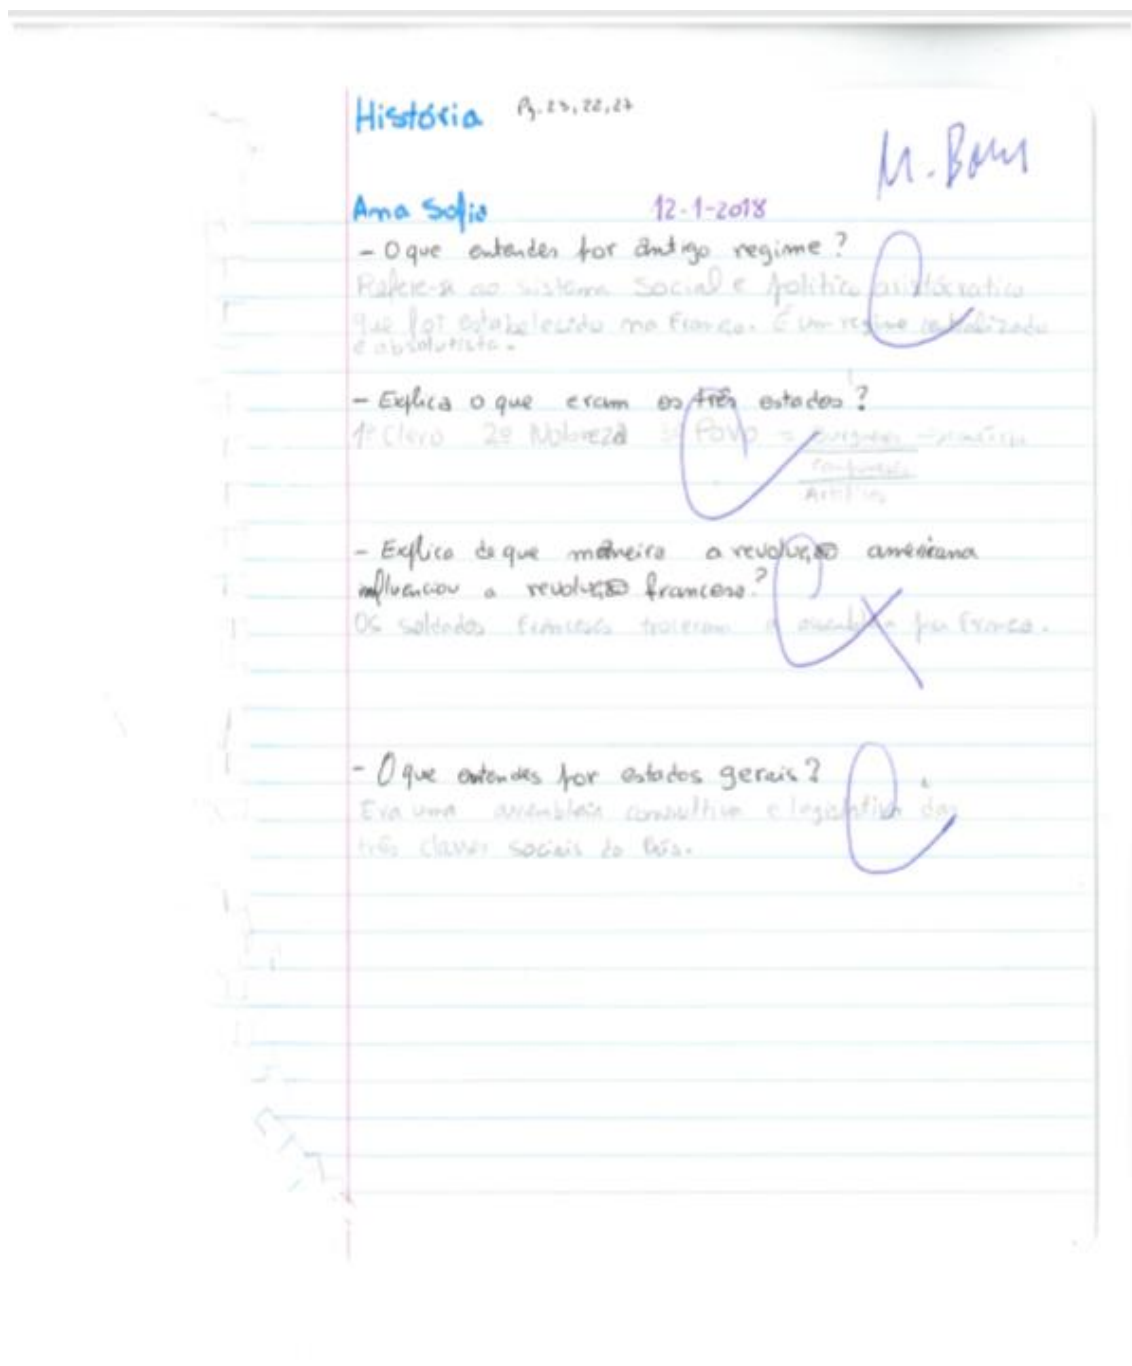 História Pg. 23, 22, 27
M. Bom
Ana Sofia 12-1-2018
- O que entendes por antigo regime?
Refere-se ao sistema Social e político aristócratico
que foi estabelecido na França. É um regime centralizado
e absolutista.
- Explica o que eram os três estados?
1º Clero 2º Nobreza 3º Povo =
- Explica de que maneira a revolução americana
influenciou a revolução francesa?
Os soldados franceses trouxeram a assembleia pra França.
- O que entendes por estados gerais?
Era uma assembleia consultiva e legislativa das
três classes sociais do País.